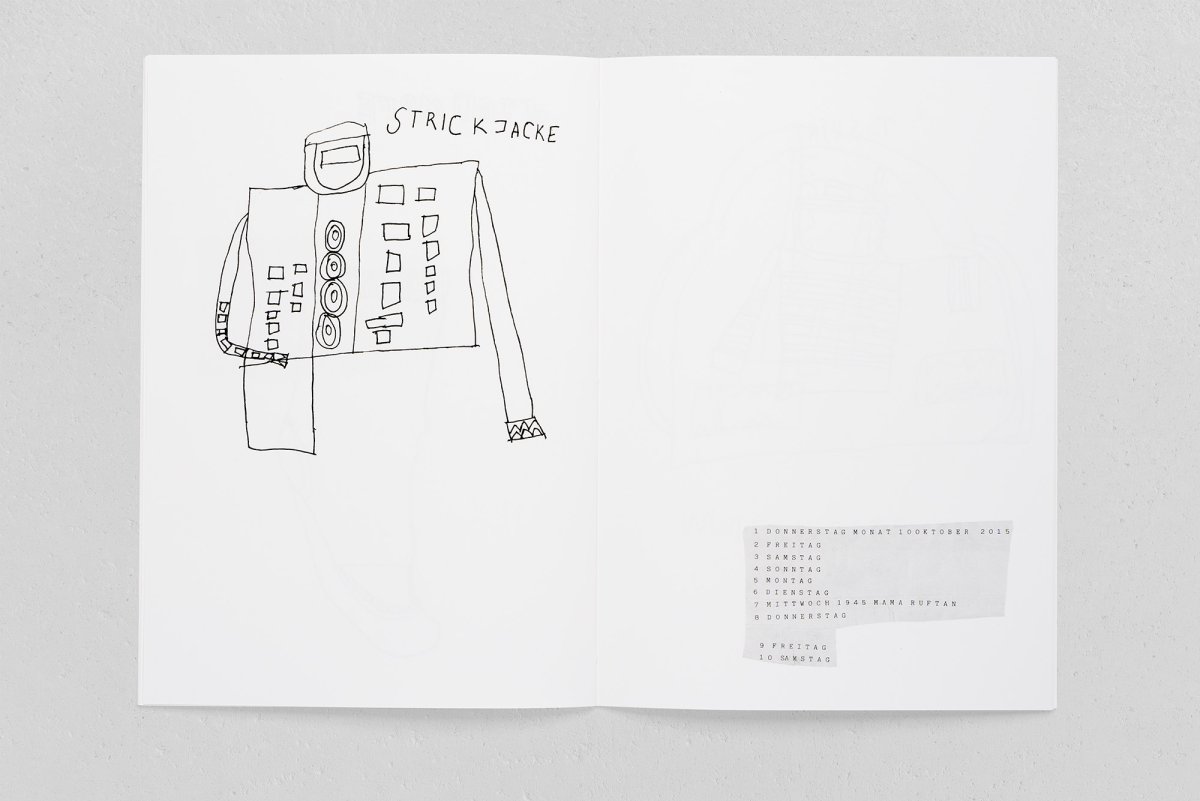 STRICKJACKE
1 DONNERSTAG MONAT 10OKTOBER 2015
2 FREITAG
3 SAMSTAG
4 SONNTAG
5 MONTAG
6 DIENSTAG
7 MITTWOCH 1945 MAMA RUFTAN
8 DONNERSTAG
9 FREITAG
10 SAMSTAG